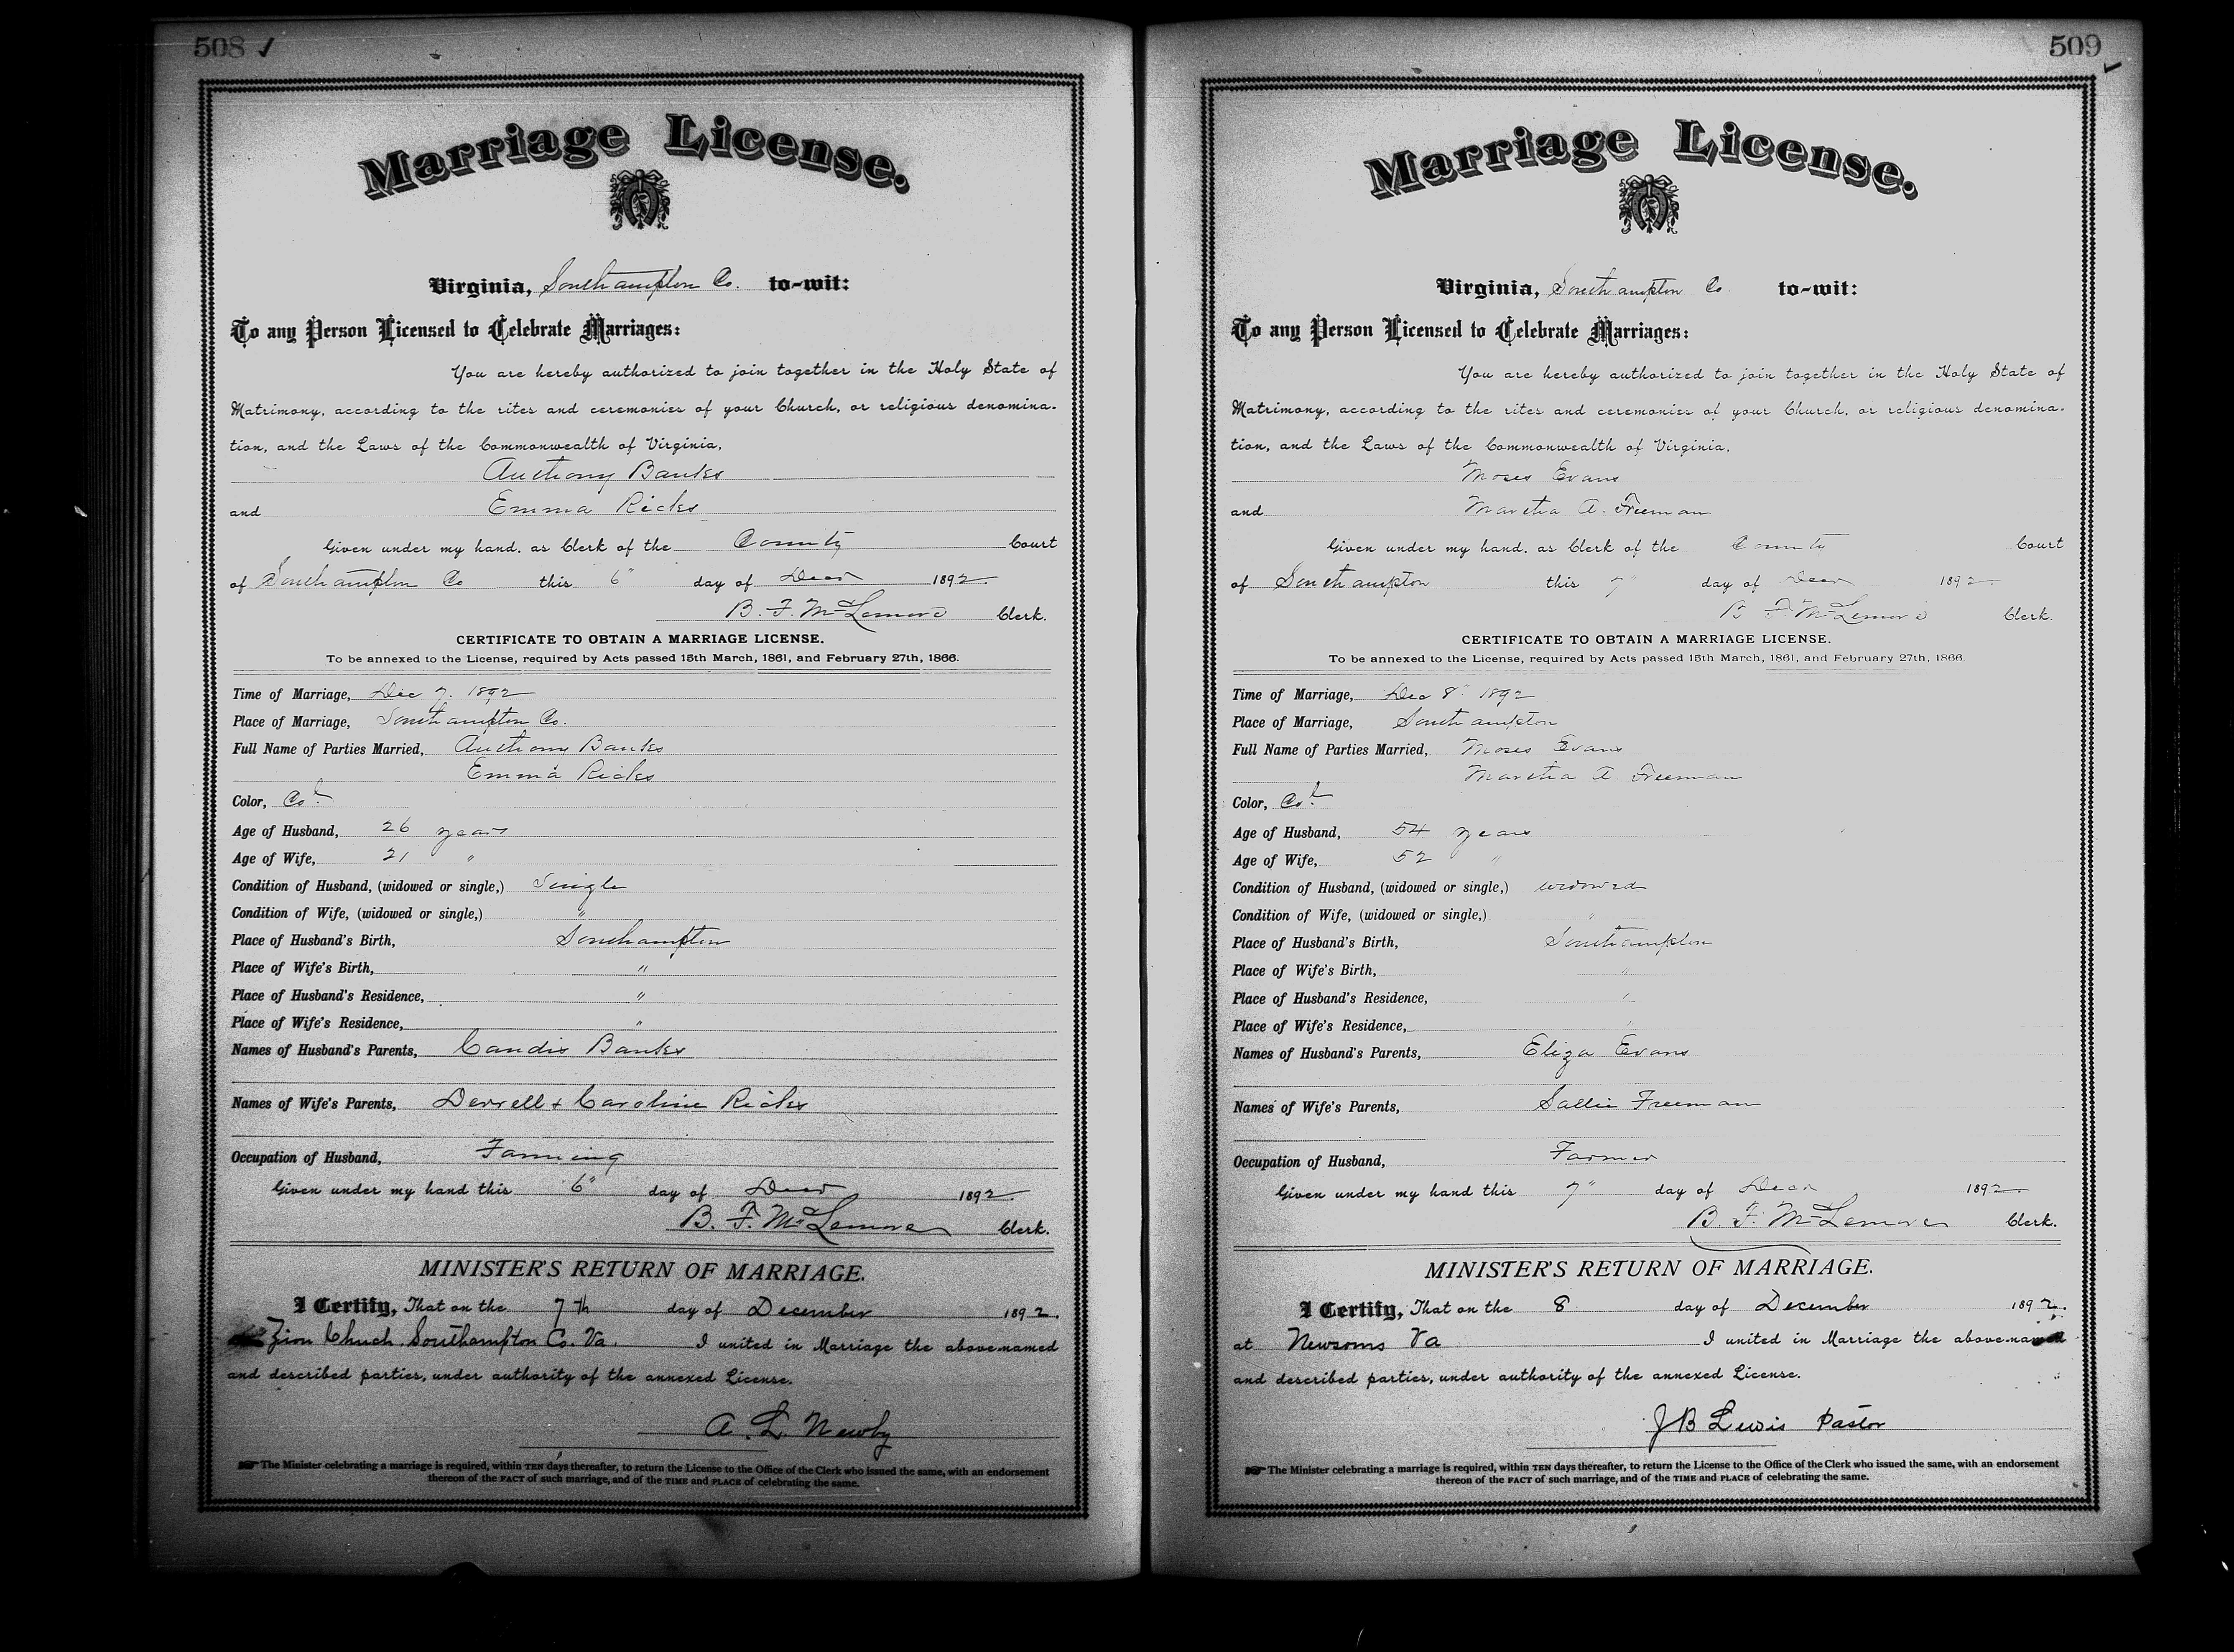 508 ✓
Marriage License.
Virginia, Southampton Co. to-wit:
To any Person Licensed to Celebrate Marriages:
You are hereby authorized to join together in the Holy State of
Matrimony, according to the rites and ceremonies of your Church, or religious denomina-
tion, and the Laws of the Commonwealth of Virginia,
Anthony Banks
and Emma Ricks
Given under my hand, as Clerk of the County Court
of Southampton Co this 6" day of Decr 1892.
B. F. McLemore Clerk.
CERTIFICATE TO OBTAIN A MARRIAGE LICENSE.
To be annexed to the License, required by Acts passed 15th March, 1861, and February 27th, 1866.
Time of Marriage, Dec 7. 1892
Place of Marriage, Southampton Co.
Full Name of Parties Married, Anthony Banks
Emma Ricks
Color, Cold
Age of Husband, 26 years
Age of Wife, 21 "
Condition of Husband, (widowed or single,) Single
Condition of Wife, (widowed or single,) "
Place of Husband's Birth, Southampton
Place of Wife's Birth, "
Place of Husband's Residence, "
Place of Wife's Residence, "
Names of Husband's Parents, Candis Banks
Names of Wife's Parents, Derrell & Caroline Ricks
Occupation of Husband, Farming
Given under my hand this 6" day of Decr 1892.
B. F. McLemore Clerk.
MINISTER'S RETURN OF MARRIAGE.
I Certify, That on the 7th day of December 1892.
Zion Chuch, Southampton Co. Va. I united in Marriage the above named
and described parties, under authority of the annexed License.
A. L. Newby
☞ The Minister celebrating a marriage is required, within TEN days thereafter, to return the License to the Office of the Clerk who issued the same, with an endorsement
thereon of the FACT of such marriage, and of the TIME and PLACE of celebrating the same.
509 ✓
Marriage License.
Virginia, Southampton Co to-wit:
To any Person Licensed to Celebrate Marriages:
You are hereby authorized to join together in the Holy State of
Matrimony, according to the rites and ceremonies of your Church, or religious denomina-
tion, and the Laws of the Commonwealth of Virginia,
Moses Evans
and Martha A. Freeman
Given under my hand, as Clerk of the County Court
of Southampton this 7" day of Decr 1892.
B F McLemore Clerk.
CERTIFICATE TO OBTAIN A MARRIAGE LICENSE.
To be annexed to the License, required by Acts passed 15th March, 1861, and February 27th, 1866.
Time of Marriage, Dec 8" 1892
Place of Marriage, Southampton
Full Name of Parties Married, Moses Evans
Martha A. Freeman
Color, Cold
Age of Husband, 54 years
Age of Wife, 52 "
Condition of Husband, (widowed or single,) widowed
Condition of Wife, (widowed or single,) "
Place of Husband's Birth, Southampton
Place of Wife's Birth, "
Place of Husband's Residence, "
Place of Wife's Residence, "
Names of Husband's Parents, Eliza Evans
Names of Wife's Parents, Sallie Freeman
Occupation of Husband, Farmer
Given under my hand this 7" day of Decr 1892.
B. F. McLemore Clerk.
MINISTER'S RETURN OF MARRIAGE.
I Certify, That on the 8 day of December 1892.
at Newsoms Va I united in Marriage the above named
and described parties, under authority of the annexed License.
J B Lewis Pastor
☞ The Minister celebrating a marriage is required, within TEN days thereafter, to return the License to the Office of the Clerk who issued the same, with an endorsement
thereon of the FACT of such marriage, and of the TIME and PLACE of celebrating the same.